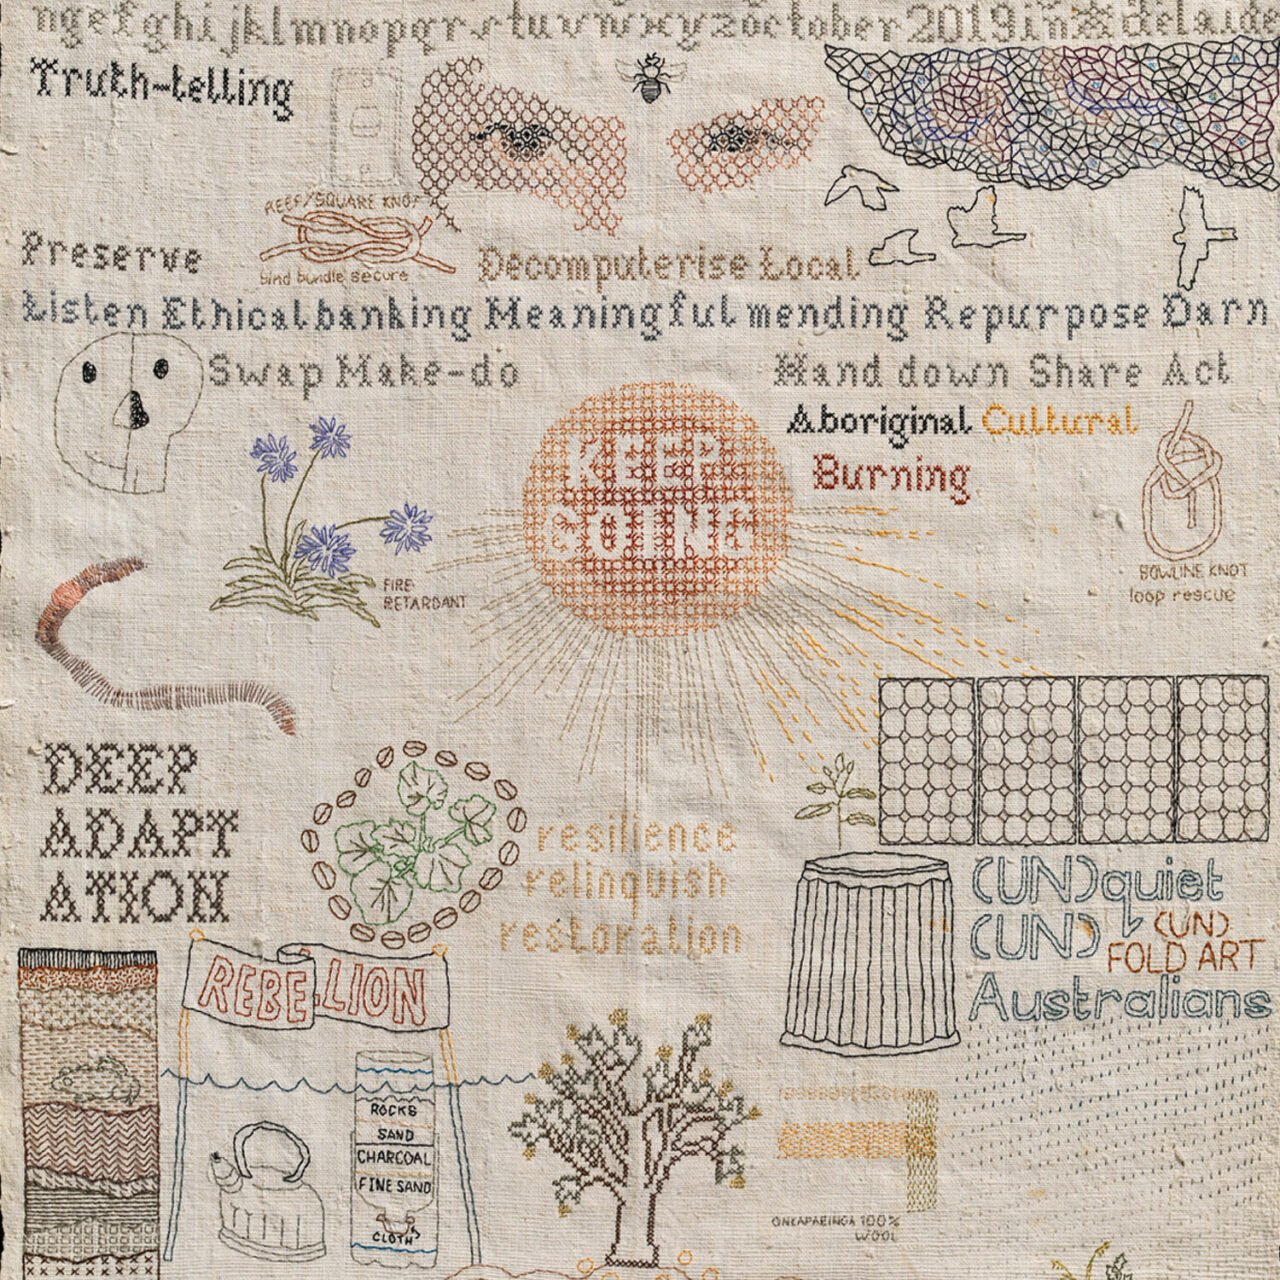 ngefghijklmnopqrstuvwxyzoctober 2019inadelaide
Truth-telling
REEF/SQUARE KNOT
bind bundle secure
Preserve
Decomputerise Local
Listen Ethical banking Meaningful mending Repurpose Darn
Swap Make-do
Hand down Share Act
KEEP
GOING
Aboriginal Cultural
Burning
BOWLINE KNOT
loop rescue
FIRE
RETARDANT
DEEP
ADAPT
ATION
resilience
relinquish
restoration
(UN)quiet
(UN)
(UN)
FOLD ART
Australians
REBELLION
ROCKS
SAND
CHARCOAL
FINE SAND
CLOTH
ONKAPARINGA 100%
WOOL